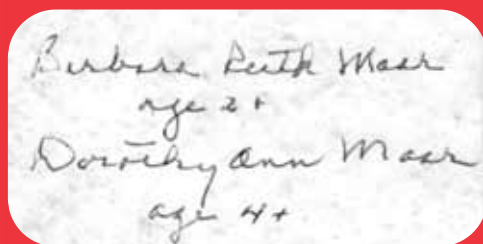 Barbara Ruth Maar
age 2+
Dorothy Ann Maar
age 4+